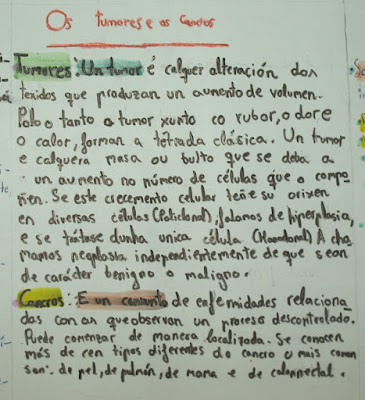 Os tumores e os Cancros
Tumores: Un tumor é calquer alteración dos
texidos que produzan un aumento de volumen.
Polo o tanto a tumor xunto co rubor, o dore
o calor, forman a tétrada clásica. Un tumor
e calquera masa ou bulto que se deba a
un aumento no número de células que o compo-
ñen. Se este crecemento celular teñe su orixen
en diversas células (Policlonal), falamos de hiperplasia,
e se trátase dunha unica célula (Monoclonal) A cha-
mamos neoplasia independientemente de que sean
de carácter benigno o maligno.
Cancros: E un conxunto de enfermidades relaciona-
das con as que observan un proceso descontrolado.
Puede comenzar de manera localizada. Se conocen
más de cen tipos diferentes do cancro o mais comun
son: de pel, de pulmón, de mama e de colorrectal.